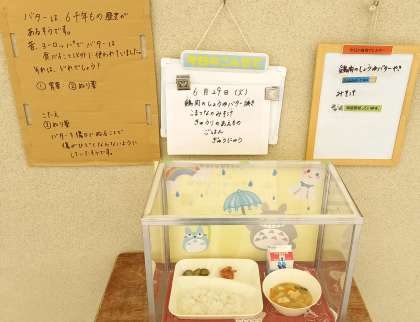 バターは6千年もの歴史が
あるそうです。
昔、ヨーロッパでバターは
食べること以外に使われていました。
それは、どれでしょう?
①胃薬 ②ぬり薬
こたえ
②ぬり薬
バターを傷口にぬることで
傷がひどくならないように
していたそうです。
今日のこんだて
6月29日(火)
鶏肉のしょうゆバター焼き
こまつなのみそ汁
きゅうりのあえもの
ごはん
ぎゅうにゅう
鶏肉のしょうゆバターやき
みそ汁